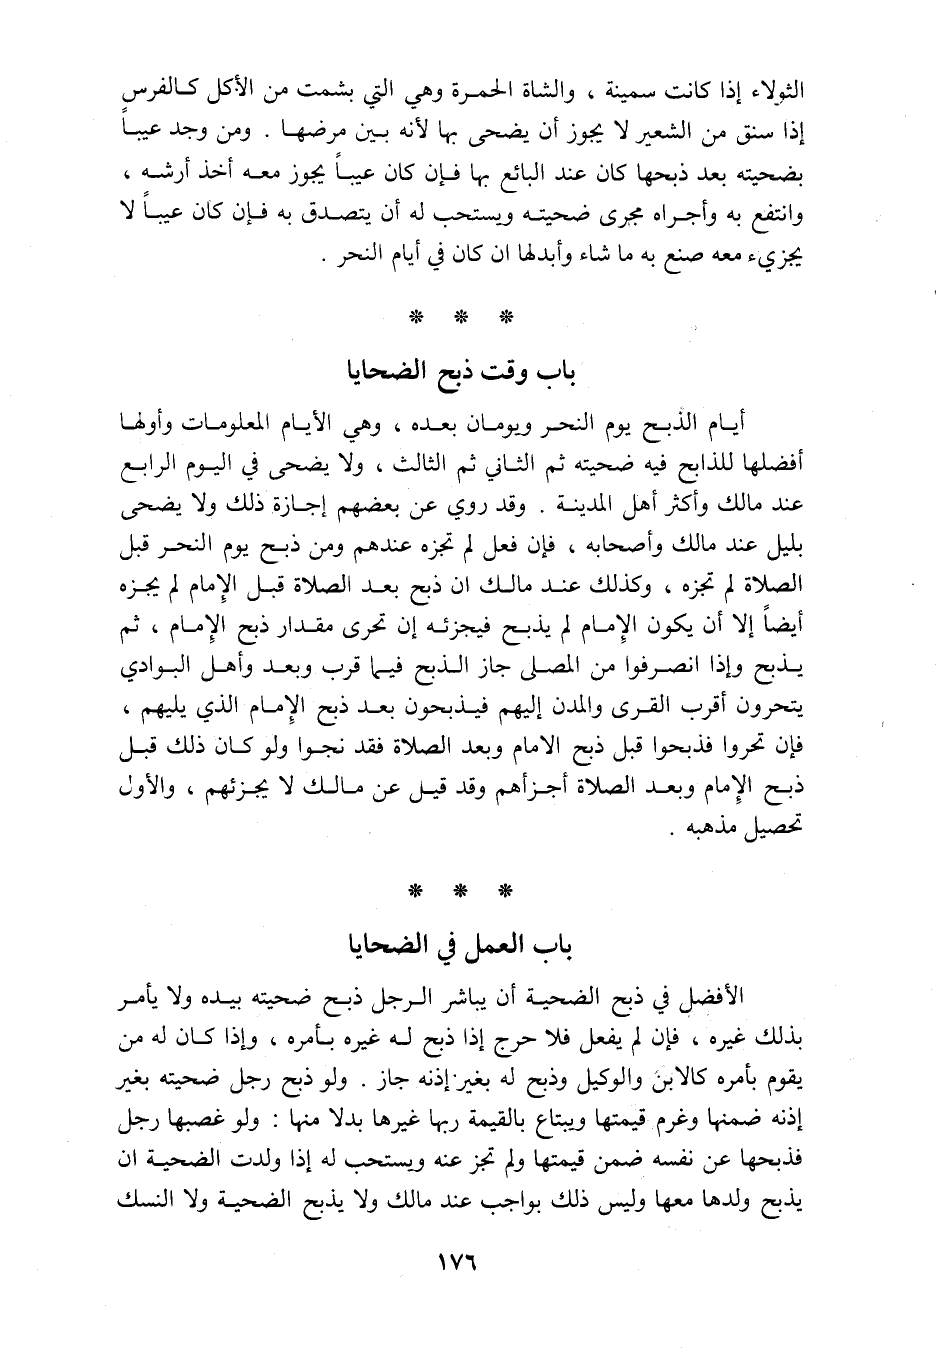 الثولاء إذا كانت سمينة ، والشاة الحمرة وهي التي بشمت من الأكل كالفرس
إذا سنق من الشعير لا يجوز أن يضحى بها لأنه بين مرضها . ومن وجد عيباً
بضحيته بعد ذبحها كان عند البائع بها فإن كان عيباً يجوز معه أخذ أرشه ،
وانتفع به وأجراه مجرى ضحيته ويستحب له أن يتصدق به فإن كان عيباً لا
يجزيء معه صنع به ما شاء وأبدلها ان كان في أيام النحر .
* * *
باب وقت ذبح الضحايا
أيام الذبح يوم النحر ويومان بعده ، وهي الأيام المعلومات وأولها
أفضلها للذابح فيه ضحيته ثم الثاني ثم الثالث ، ولا يضحى في اليوم الرابع
عند مالك وأكثر أهل المدينة . وقد روي عن بعضهم إجازة ذلك ولا يضحى
بليل عند مالك وأصحابه ، فإن فعل لم تجزه عندهم ومن ذبح يوم النحر قبل
الصلاة لم تجزه ، وكذلك عند مالك ان ذبح بعد الصلاة قبل الإمام لم يجزه
أيضاً إلا أن يكون الإمام لم يذبح فيجزئه إن تحرى مقدار ذبح الإمام ، ثم
يذبح وإذا انصرفوا من المصلى جاز الذبح فيما قرب وبعد وأهل البوادي
يتحرون أقرب القرى والمدن إليهم فيذبحون بعد ذبح الإمام الذي يليهم ،
فإن تحروا فذبحوا قبل ذبح الامام وبعد الصلاة فقد نجوا ولو كان ذلك قبل
ذبح الإمام وبعد الصلاة أجزأهم وقد قيل عن مالك لا يجزئهم ، والأول
تحصيل مذهبه .
* * *
باب العمل في الضحايا
الأفضل في ذبح الضحية أن يباشر الرجل ذبح ضحيته بيده ولا يأمر
بذلك غيره ، فإن لم يفعل فلا حرج إذا ذبح له غيره بأمره ، وإذا كان له من
يقوم بأمره كالابن والوكيل وذبح له بغير إذنه جاز . ولو ذبح رجل ضحيته بغير
إذنه ضمنها وغرم قيمتها ويبتاع بالقيمة ربها غيرها بدلا منها : ولو غصبها رجل
فذبحها عن نفسه ضمن قيمتها ولم تجز عنه ويستحب له إذا ولدت الضحية ان
يذبح ولدها معها وليس ذلك بواجب عند مالك ولا يذبح الضحية ولا النسك
١٧٦